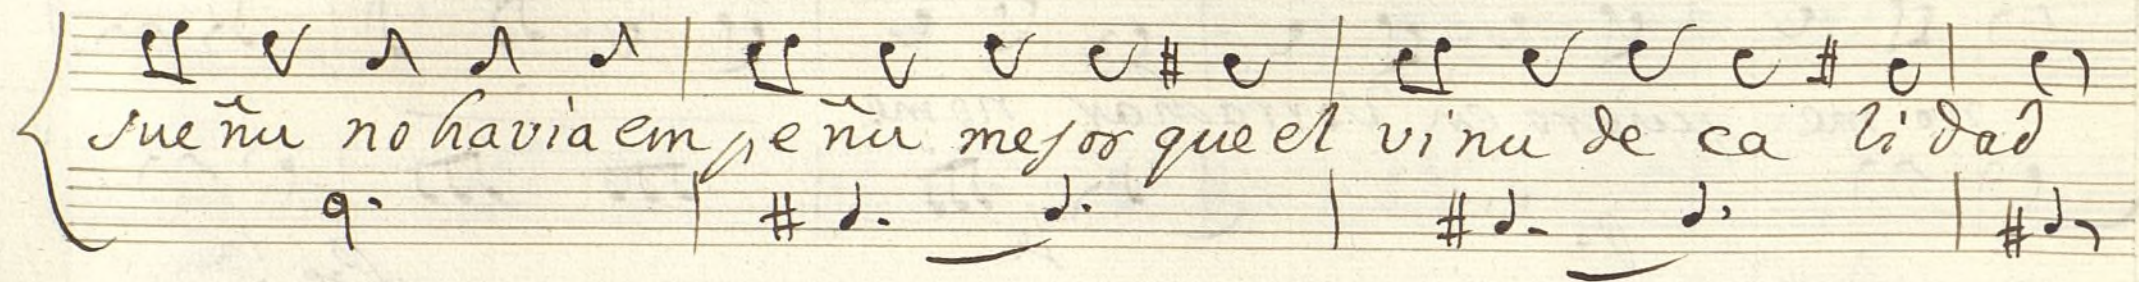 sueñu no havia empeñu mejor que el vinu de calidad